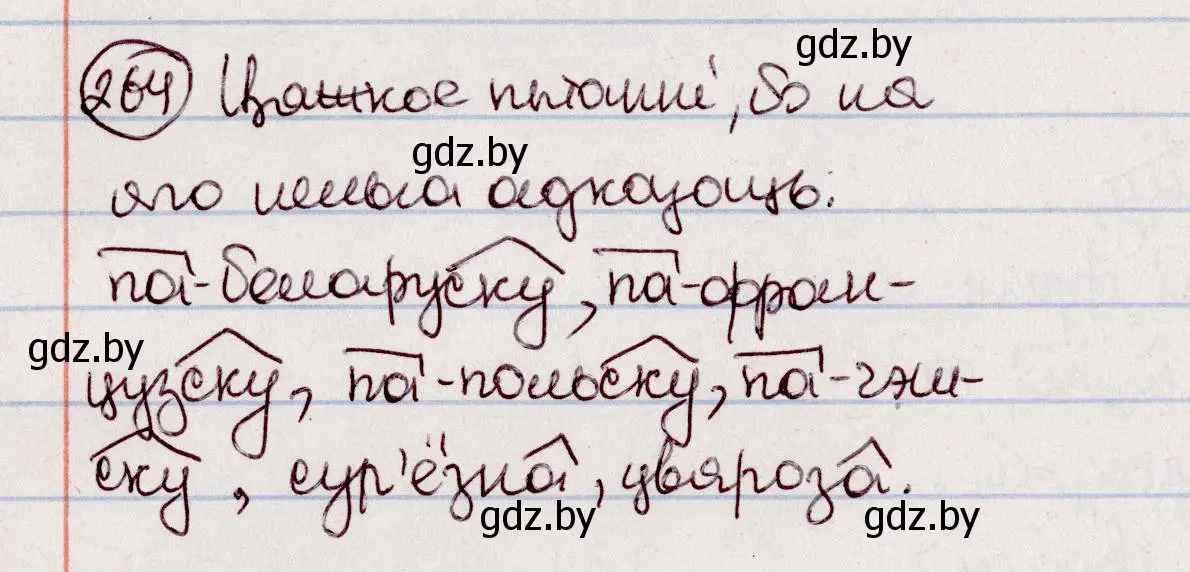 gdz.by
264 Цяжкое пытанне, бо на
gdz.by
яго нельга адказаць.
па-беларуску, па-фран-
gdz.by
цузску, па-польску, па-гэш-
ску, сур'ёзна, цвяроза.
gdz.by gdz.by